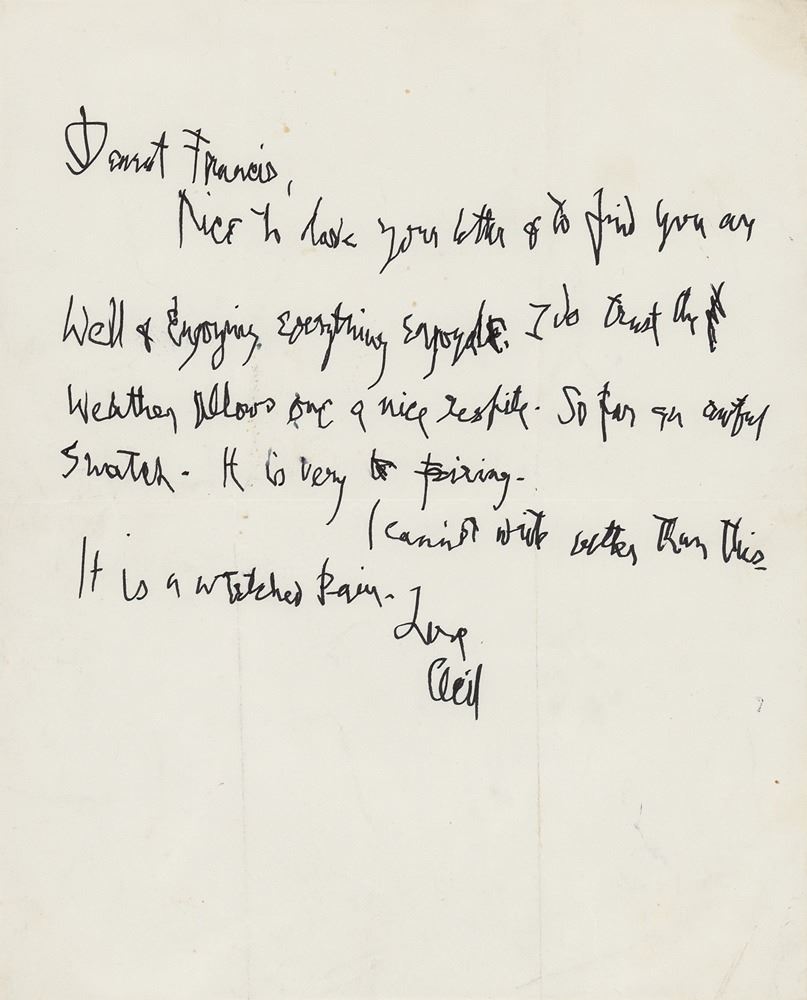 Dearest Francis,
Nice to have your letter & to find you are
Well & Enjoying everything enjoyable. I do trust the
Weather Allows one a nice respite. So far an awful
Swatch. It is very tiring.
I cannot write better than this
It is a wretched pain.
Love
Cecil